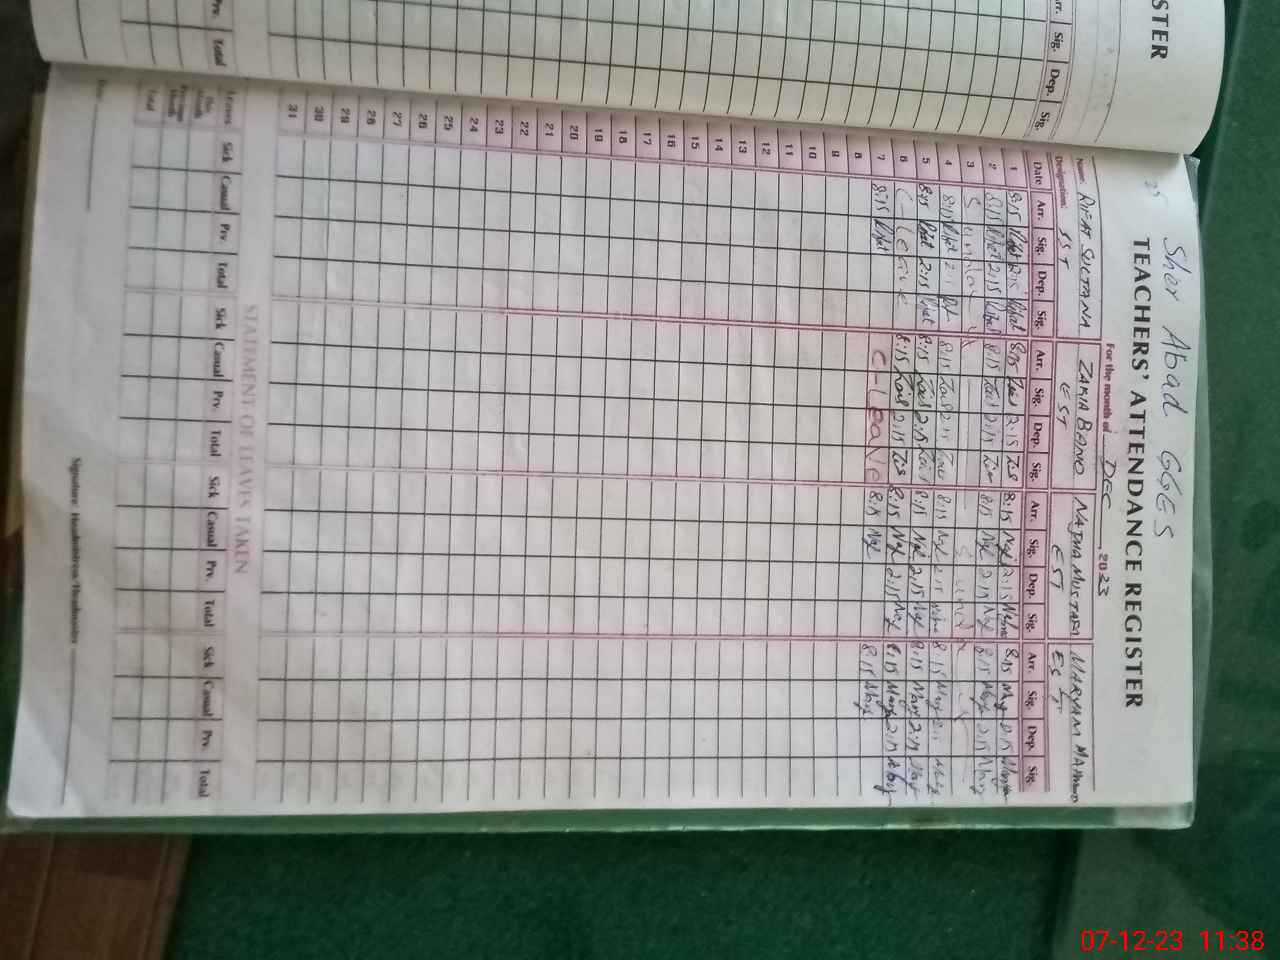 STER
rr. Sig. Dep. Sig.
Prv. Total
25 Sher Abad GGES
TEACHERS' ATTENDANCE REGISTER
For the month of DEC, 2023
Name: RIFAT SULTANA ZAKIA BANO NAJMA MUSTAFA MARYAM MAHMOOD
Designation: SST EST EST EST
Date Arr. Sig. Dep. Sig. Arr. Sig. Dep. Sig. Arr. Sig. Dep. Sig. Arr. Sig. Dep. Sig.
1 8:15 Rifat 2:15 Rifat 8:15 2:15 8:15 2:15 8:15 2:15
2 8:15 Rifat 2:15 Rifat 8:15 2:15 8:15 2:15 8:15 2:15
3 Sunday
4 8:15 Rifat 8:15 2:15 8:15 2:15 8:15 2:15
5 8:15 Rifat 2:15 Rifat 8:15 2:15 8:15 2:15 8:15 2:15
6 C-leave 8:15 2:15 8:15 2:15 8:15 2:15
7 8:15 Rifat C-Leave 8:15 8:15
8
9
10
11
12
13
14
15
16
17
18
19
20
21
22
23
24
25
26
27
28
29
30
31
STATEMENT OF LEAVES TAKEN
Leaves: Sick Casual Prv. Total Sick Casual Prv. Total Sick Casual Prv. Total Sick Casual Prv. Total
This Month
Previous Month
Total
Date
Signature: Headmistress/Headmaster
07-12-23 11:38